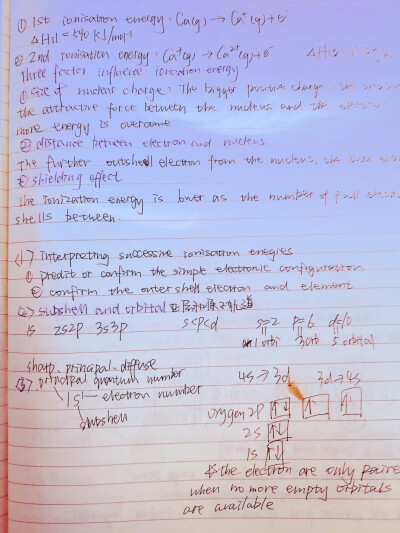 ① 1st ionisation energy: Ca(g) → Ca⁺(g) + e⁻
ΔHi1 = 590 kJ/mol⁻¹
② 2nd ionisation energy: Ca⁺(g) → Ca²⁺(g) + e⁻
Three factor influence ionisation energy
① size of nuclear charge: The bigger positive charge, The
the attractive force between the nucleus and the
more energy is overcome
② distance between electron and nucleus
The further outshell electron from the nucleus, the
③ shielding effect
The ionization energy is lower as the number of full
shells between.
(1) interpreting successive ionisation energies
① predict or confirm the simple electronic configuration
② confirm the outer shell electron and element
(2) subshell and orbital 亚层和原子轨道
1s 2s2p 3s3p s<p<d s=2 p=6 d=10
1 orbi 3 orb 5 orbital
sharp principal diffuse
4s → 3d 3d → 4s
(3) principal quantum number
1s¹ — electron number
subshell
oxygen 2p ↑↓ ↑ ↑
2s ↑↓
1s ↑↓
the electron are only paire
when no more empty orbitals
are available